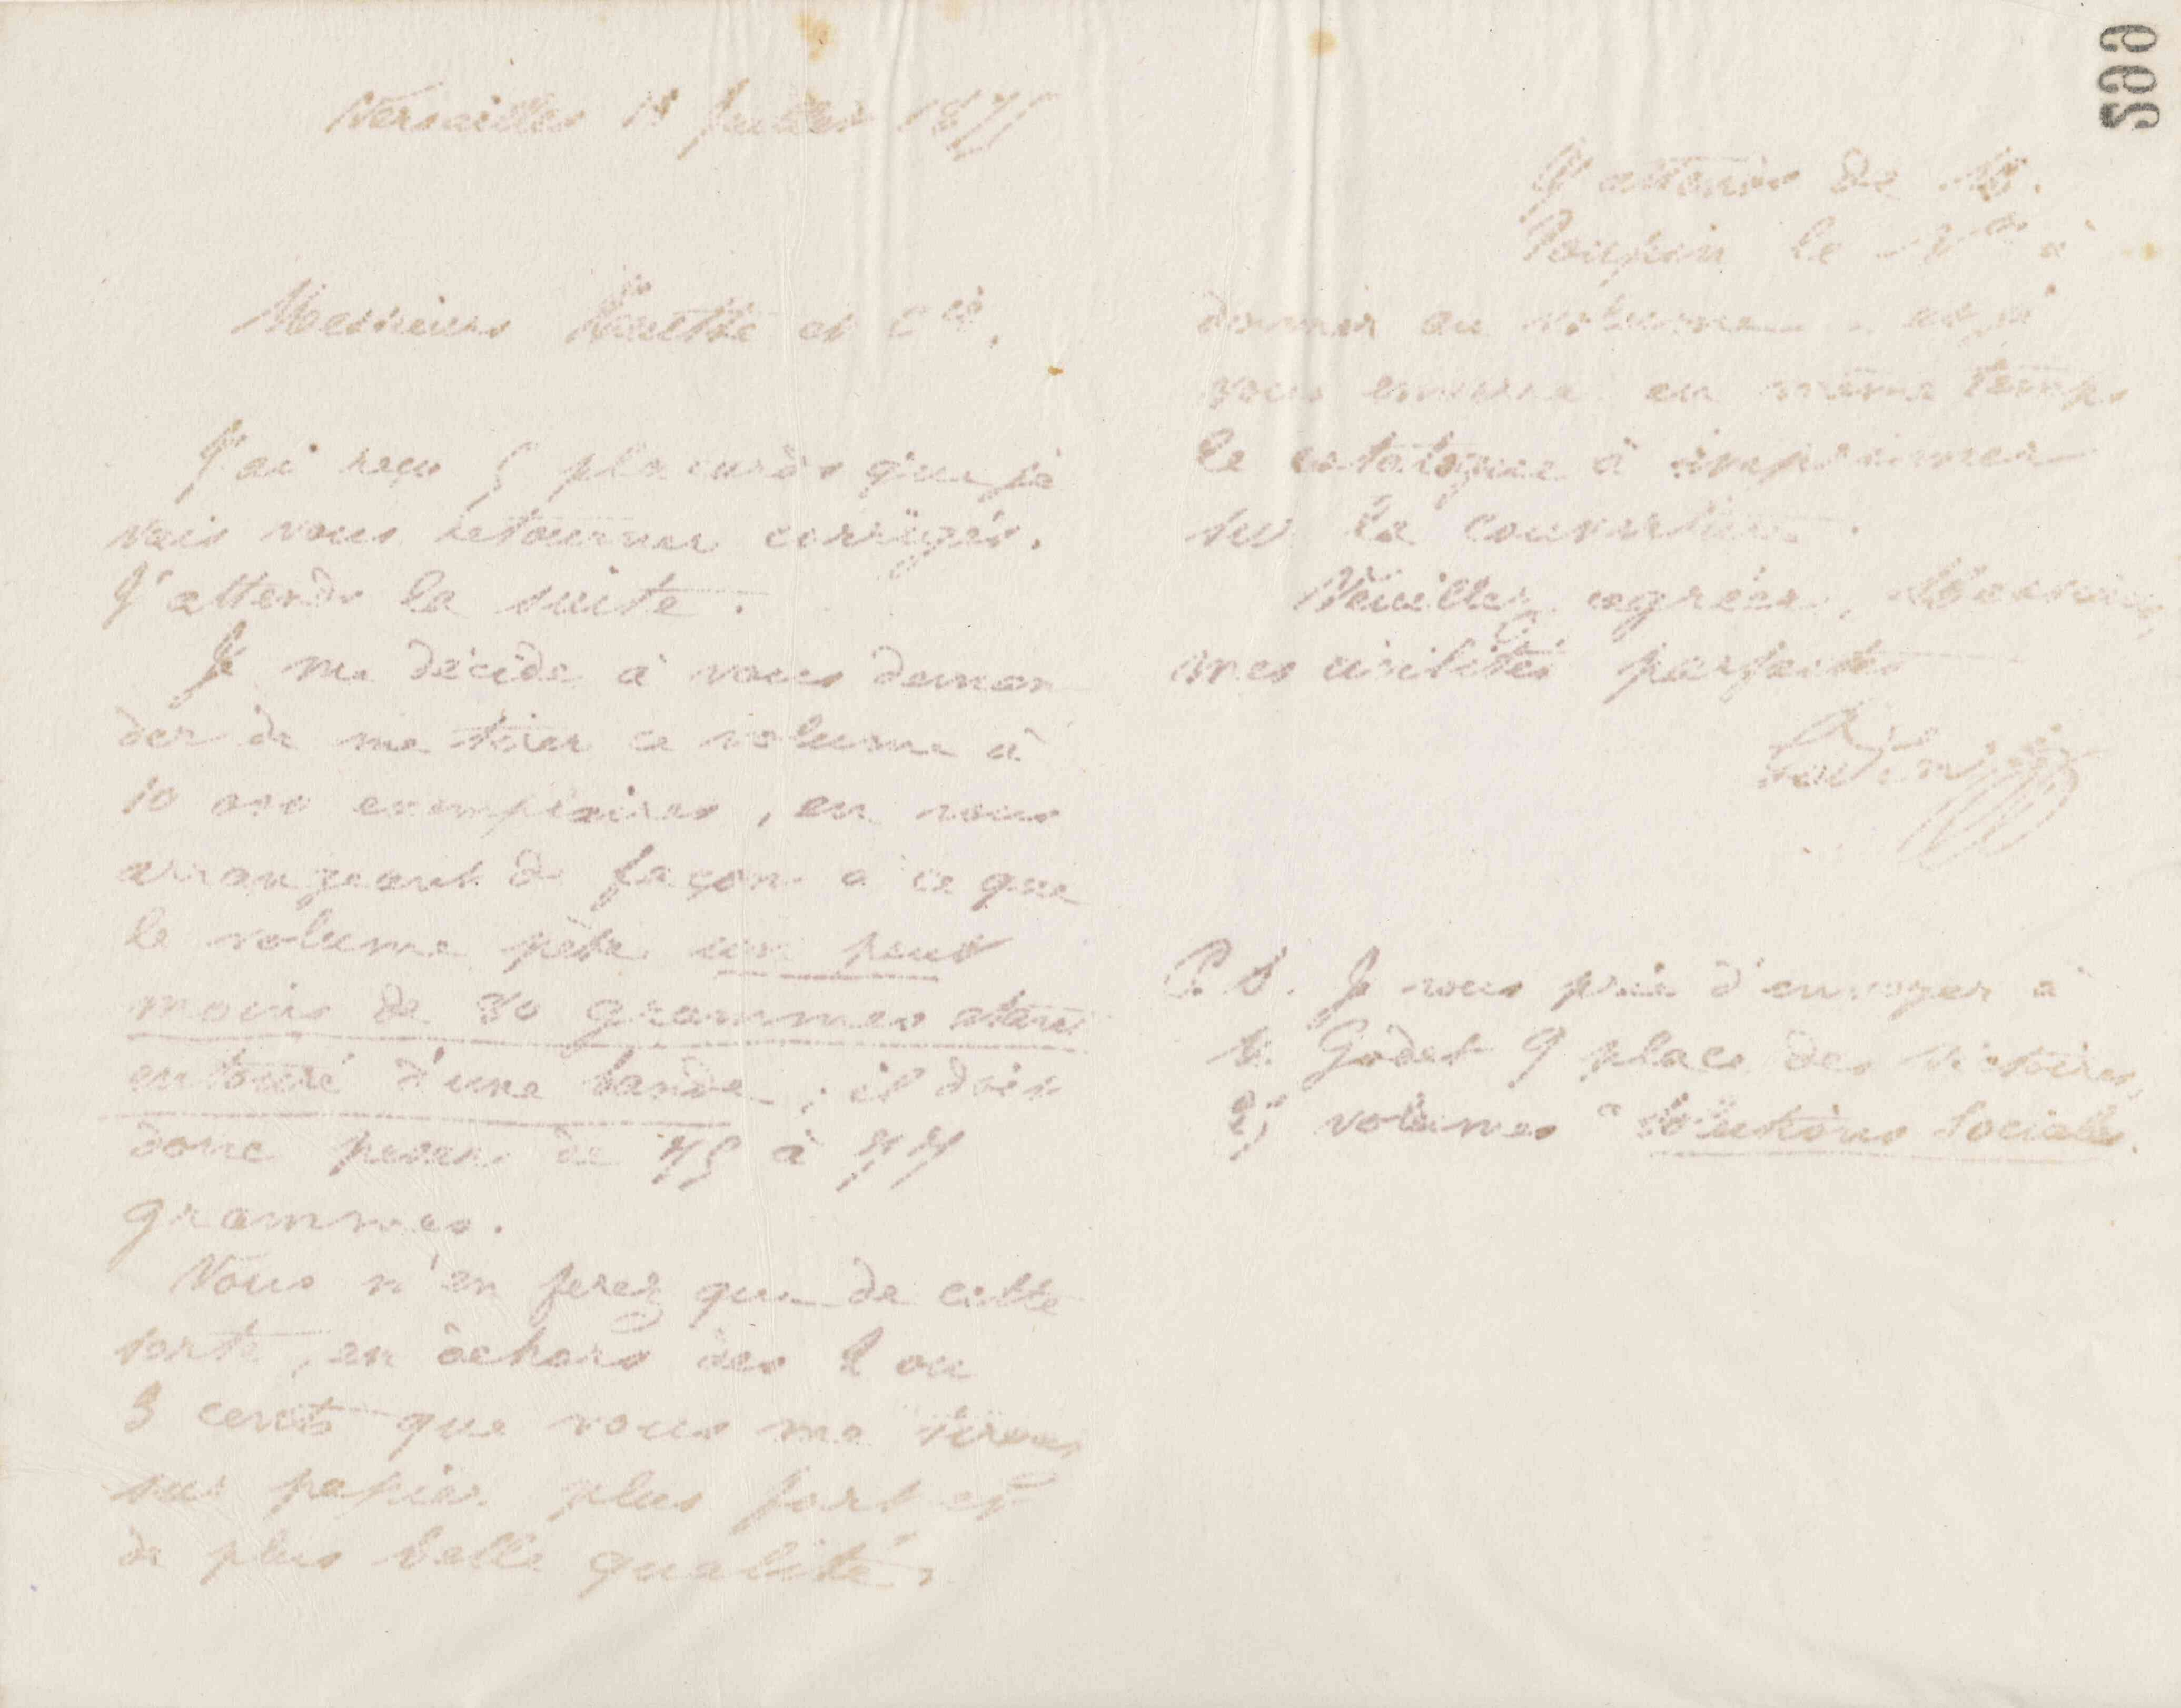 Versailles 11 Juillet 1875
Messieurs et Cie.
J'ai reçu 5 placards que je
vais vous retourner corrigés.
J'attends la suite.
Je me décide à vous deman
der de me tirer ce volume à
10 000 exemplaires, en vous
arrangeant de façon à ce que
le volume pèse un peu
moins de 80 grammes étant
entouré d'une bande ; il doit
donc peser de 75 à 77
grammes.
Vous n'en ferez que de cette
sorte, en dehors des 2 ou
3 cents que vous me tirerez
sur papier plus fort et
de plus belle qualité.
J'attends de M.
le à
donner au volume et je
vous enverrai en même temps
le catalogue à imprimer
sur la couverture.
Veuillez agréer, Messieurs,
mes civilités parfaites
Godin
P.S. Je vous prie d'envoyer à
M. Godet 9 place des Victoires,
25 volumes "Solutions Sociales.
599